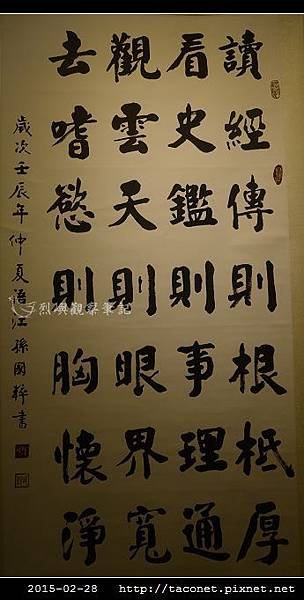 讀經傳則根柢厚
看史鑑則事理通
觀雲天則眼界寬
去嗜慾則胸懷淨
歲次壬辰年仲夏浯江孫國粹書
烈嶼觀察筆記
2015-02-28 http://taconet.pixnet.net